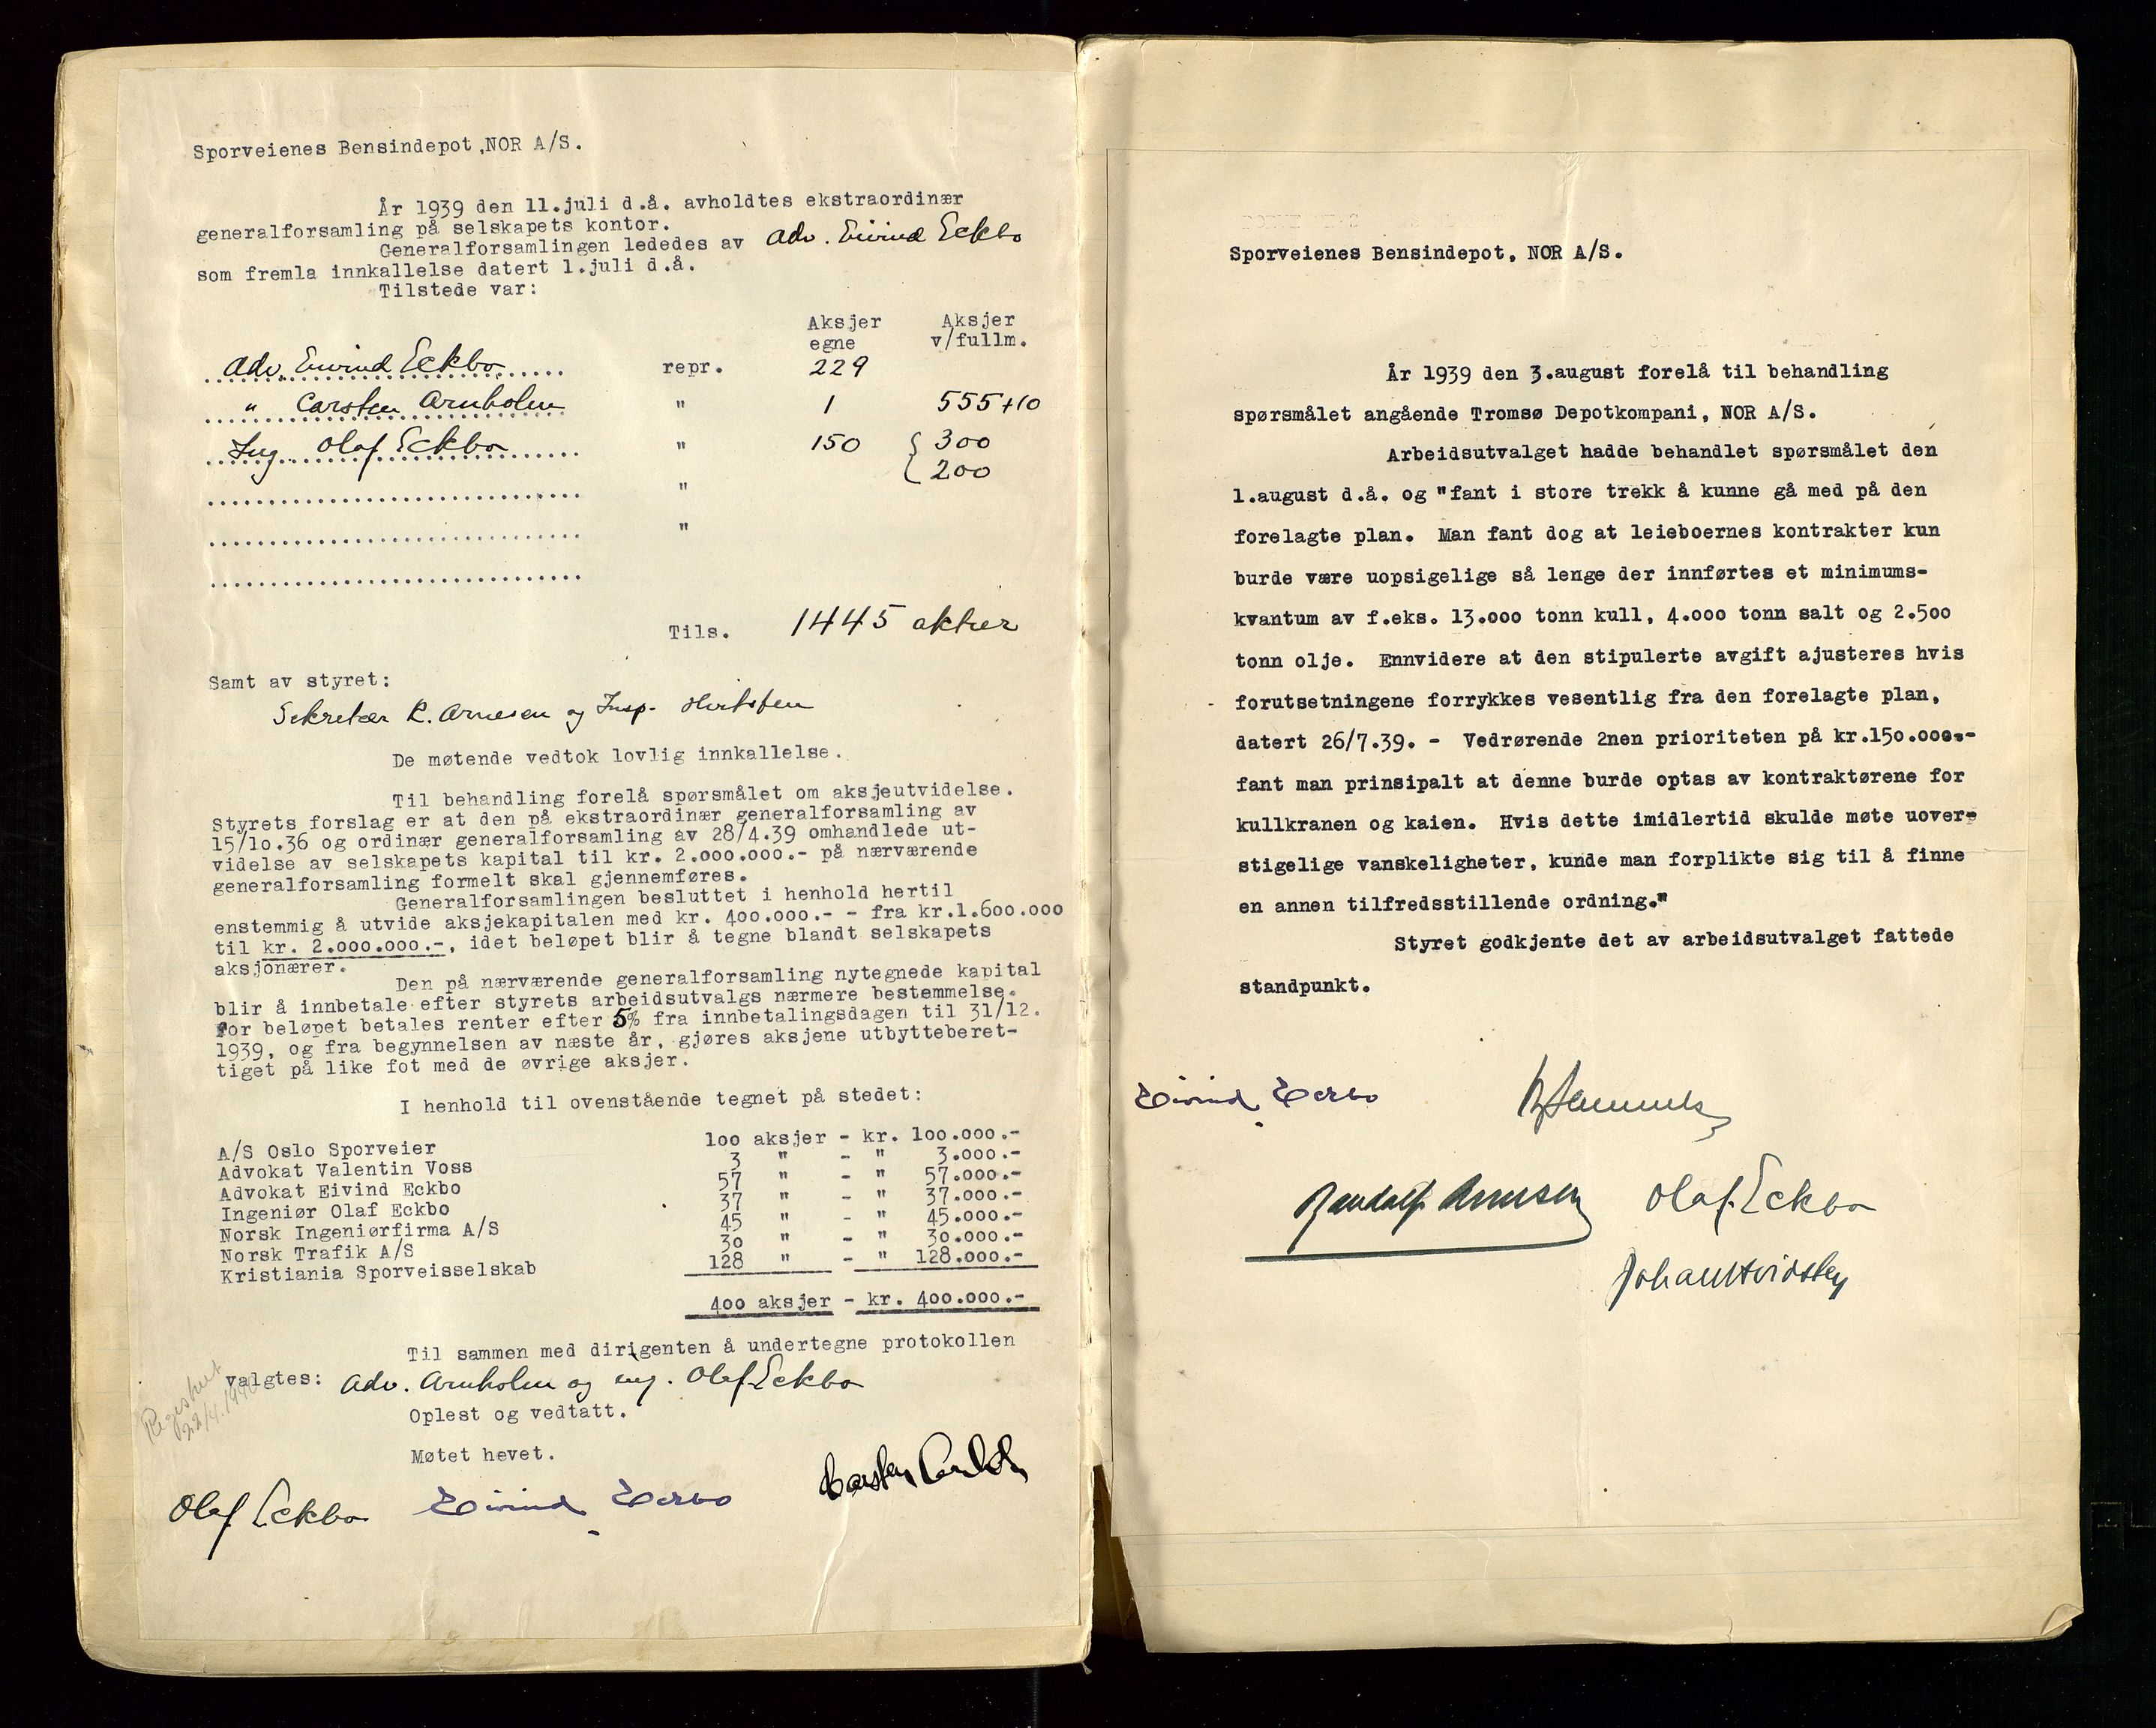 Sporveienes Bensindepot, NOR A/S.
År 1939 den 11.juli d.å. avholdtes ekstraordinær
generalforsamling på selskapets kontor.
Generalforsamlingen lededes av Adv. Eivind Eckbo
som fremla innkallelse datert 1.juli d.å.
Tilstede var:
Aksjer Aksjer
egne v/fullm.
Adv. Eivind Eckbo repr. 229
" Carsten Arnholm " 1 555+10
Ing. Olaf Eckbo " 150 { 300
{ 200
"
"
Tils. 1445 aktier
Samt av styret:
Sekretær R. Arnesen og Insp. Hvitsten
De møtende vedtok lovlig innkallelse.
Til behandling forelå spørsmålet om aksjeutvidelse.
Styrets forslag er at den på ekstraordinær generalforsamling av
15/10.36 og ordinær generalforsamling av 28/4.39 omhandlede ut-
videlse av selskapets kapital til kr. 2.000.000.- på nærværende
generalforsamling formelt skal gjennemføres.
Generalforsamlingen besluttet i henhold hertil
enstemmig å utvide aksjekapitalen med kr. 400.000.- - fra kr.1.600.000
til kr. 2.000.000.-, idet beløpet blir å tegne blandt selskapets
aksjonærer.
Den på nærværende generalforsamling nytegnede kapital
blir å innbetale efter styrets arbeidsutvalgs nærmere bestemmelse.
For beløpet betales renter efter 5% fra innbetalingsdagen til 31/12.
1939, og fra begynnelsen av næste år, gjøres aksjene utbytteberet-
tiget på like fot med de øvrige aksjer.
I henhold til ovenstående tegnet på stedet:
A/S Oslo Sporveier 100 aksjer - kr. 100.000.-
Advokat Valentin Voss 3 " - " 3.000.-
Advokat Eivind Eckbo 57 " - " 57.000.-
Ingeniør Olaf Eckbo 37 " - " 37.000.-
Norsk Ingeniørfirma A/S 45 " - " 45.000.-
Norsk Trafik A/S 30 " - " 30.000.-
Kristiania Sporveisselskab 128 " - " 128.000.-
400 aksjer - kr. 400.000.-
Til sammen med dirigenten å undertegne protokollen
valgtes: Adv. Arnholm og ing. Olaf Eckbo
Oplest og vedtatt.
Møtet hevet.
Registrert
22/4.1940
Olaf Eckbo Eivind Eckbo Carsten Arnholm
Sporveienes Bensindepot, NOR A/S.
År 1939 den 3.august forelå til behandling
spørsmålet angående Tromsø Depotkompani, NOR A/S.
Arbeidsutvalget hadde behandlet spørsmålet den
1.august d.å. og "fant i store trekk å kunne gå med på den
forelagte plan. Man fant dog at leieboernes kontrakter kun
burde være uopsigelige så lenge der innførtes et minimums-
kvantum av f.eks. 13.000 tonn kull, 4.000 tonn salt og 2.500
tonn olje. Ennvidere at den stipulerte avgift ajusteres hvis
forutsetningene forrykkes vesentlig fra den forelagte plan,
datert 26/7.39. - Vedrørende 2nen prioriteten på kr.150.000.-
fant man prinsipalt at denne burde optas av kontraktørene for
kullkranen og kaien. Hvis dette imidlertid skulde møte uover-
stigelige vanskeligheter, kunde man forplikte sig til å finne
en annen tilfredsstillende ordning."
Styret godkjente det av arbeidsutvalget fattede
standpunkt.
Eivind Eckbo
Randolf Arnesen Olaf Eckbo
Johan Hvidsten